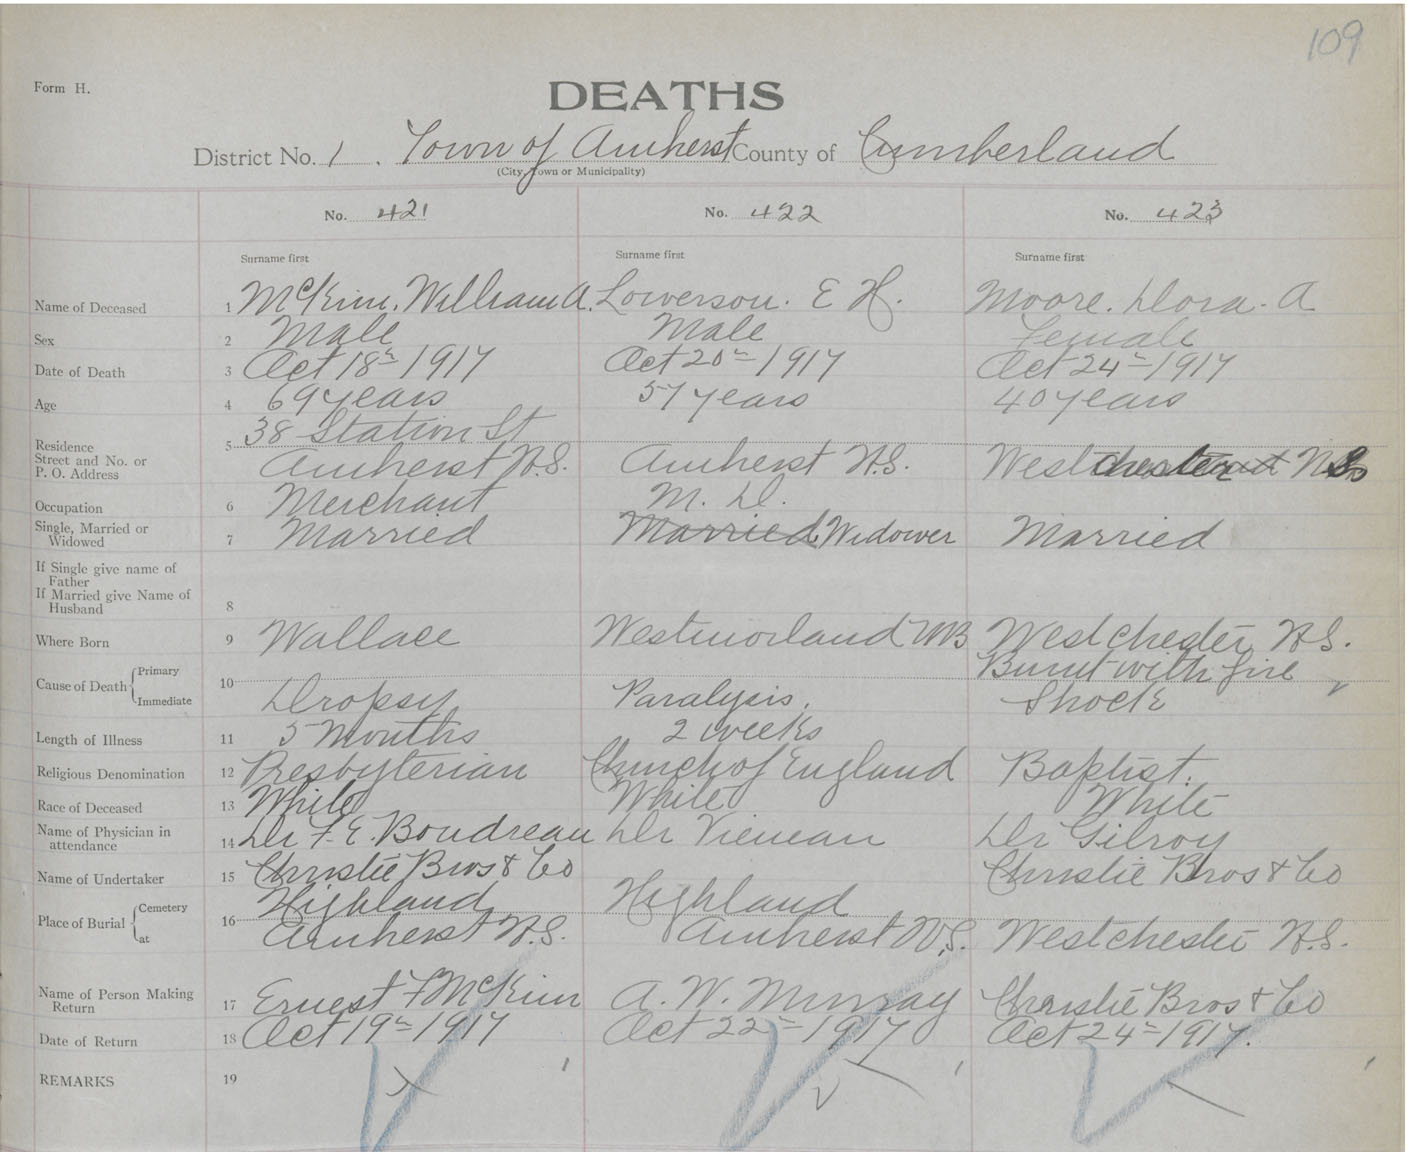 109
Form H.
DEATHS
District No. 1. Town of Amherst County of Cumberland
(City, Town or Municipality)
No. 421 No. 422 No. 423
Surname first Surname first Surname first
Name of Deceased 1 McKim, William A. Lowerson. E H. Moore. Dora. A
Sex 2 Male Male Female
Date of Death 3 Oct 18th 1917 Oct 20th 1917 Oct 24th 1917
Age 4 69 years 57 years 40 years
38 Station St
Residence 5
Street and No. or P. O. Address Amherst N.S. Amherst N.S. Westchester N.S.
Occupation 6 Merchant M. D.
Single, Married or Widowed 7 Married Married Widower Married
If Single give name of Father
If Married give Name of Husband 8
Where Born 9 Wallace Westmorland NB Westchester N.S.
Cause of Death Primary 10 Burnt with fire
Immediate Dropsy Paralysis. Shock
Length of Illness 11 5 Months 2 weeks
Religious Denomination 12 Presbyterian Church of England Baptist.
Race of Deceased 13 White White White
Name of Physician in attendance 14 Dr F. E. Boudreau Dr Dr Gilroy
Name of Undertaker 15 Christie Bros & Co Christie Bros & Co
Place of Burial Cemetery 16 Highland Highland
at Amherst N.S. Amherst N.S. Westchester N.S.
Name of Person Making Return 17 Ernest F McKim A. W. Murray Christie Bros & Co
Date of Return 18 Oct 19th 1917 Oct 22nd 1917 Oct 24th 1917.
REMARKS 19